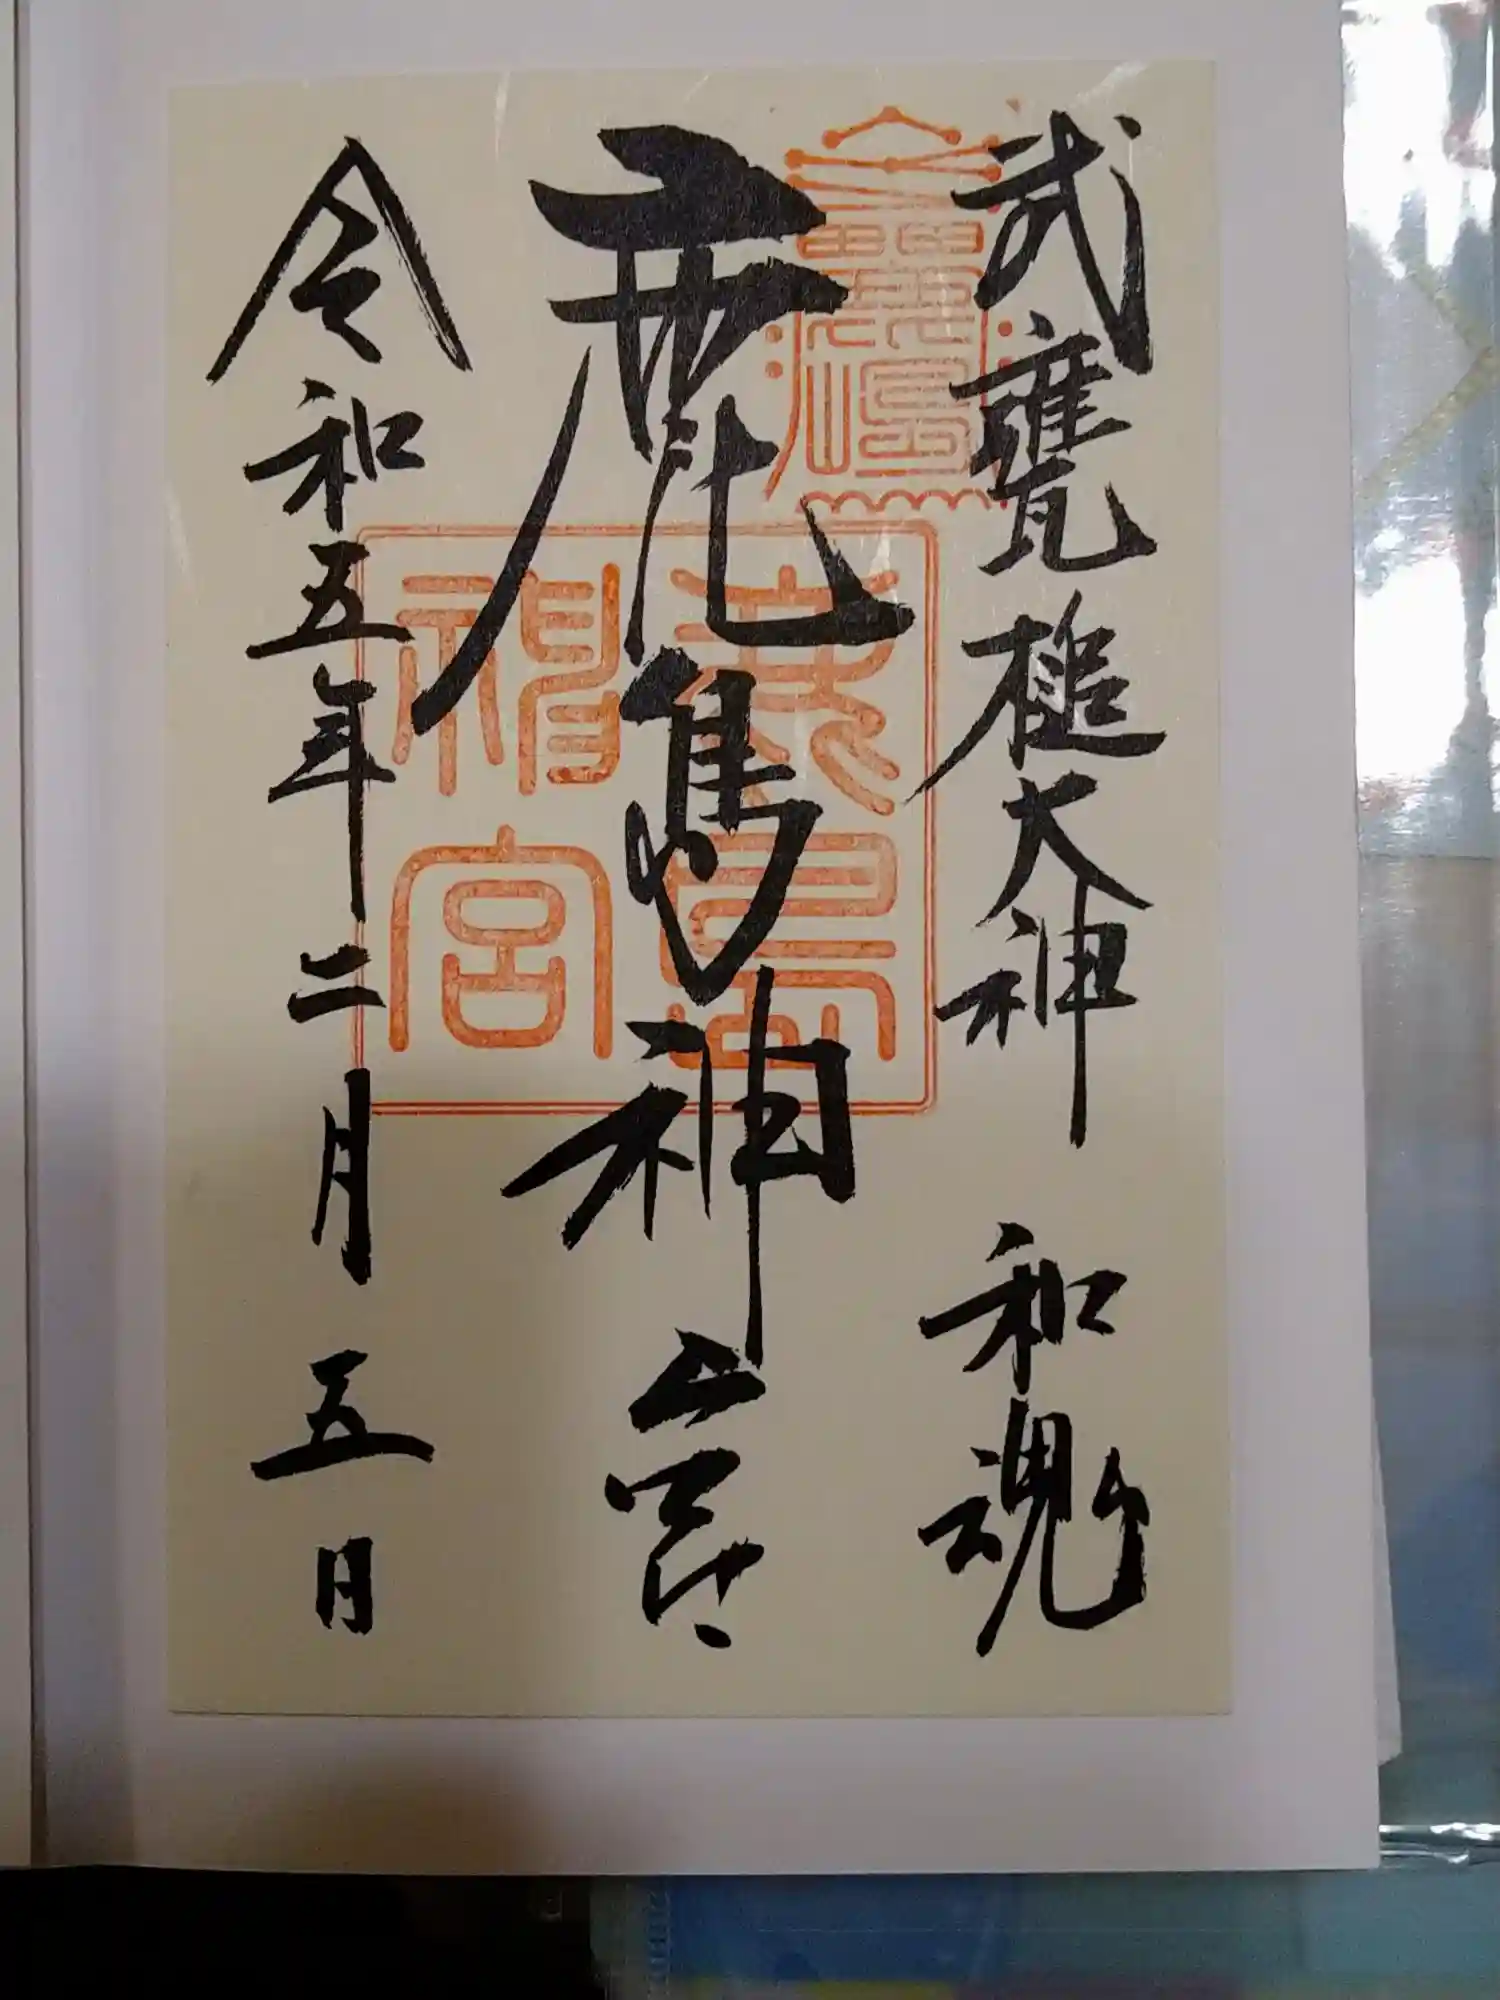 武甕槌大神 和魂
鹿島神宮
令和五年二月五日
神宮